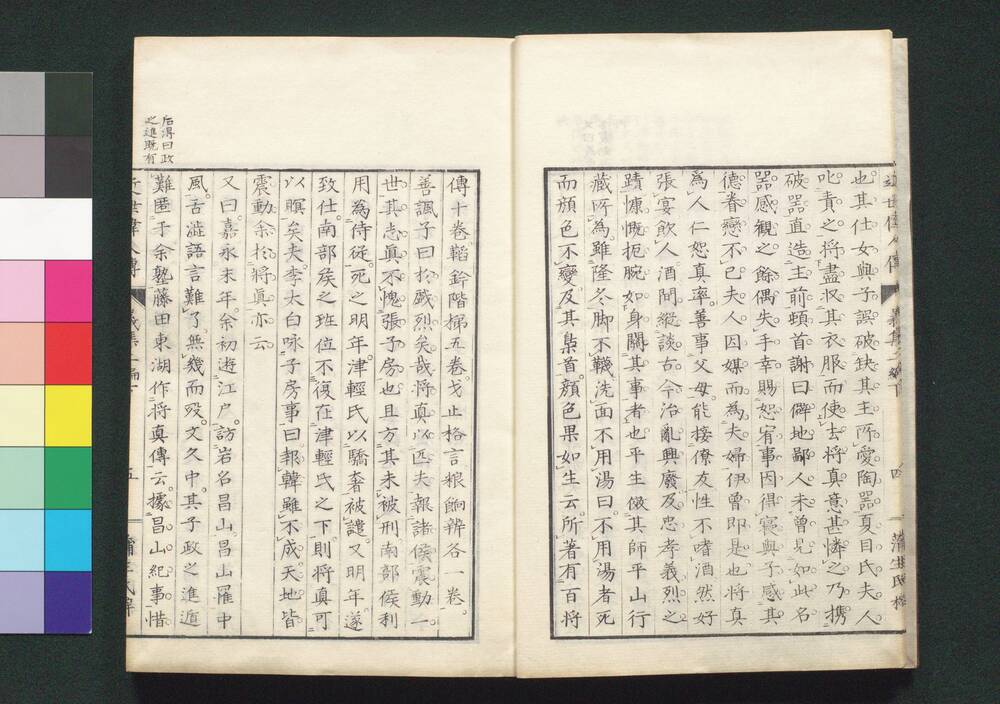 也其仕女與子誤破缺其主所愛陶器夏目氏夫人
叱責之將盡収其衣服而使去将真意甚憐之乃携
破器直造主前頓首謝曰僻地鄙人未曾見如此名
器感観之餘偶失手幸賜恕宥事因得寢與子感其
德眷戀不已夫人因媒而為夫婦伊曾即是也将真
為人仁恕真率善事父母能接僚友性不嗜酒然好
張宴飲人酒間縱談古今治亂興廢及忠孝義烈之
蹟慷慨扼腕如身關其事者也平生倣其師平山行
藏所為雖隆冬脚不韈洗面不用湯曰不用湯者死
而顔色不變及其梟首顔色果如生云所著有百將
傳十卷韜鈐階梯五卷戈止格言粮餉辨各一卷
善諷子曰於戲烈矣哉将真以匹夫報諸侯震動一
世其志真不愧張子房也且方其未被刑南部侯利
用為侍従死之明年津輕氏以驕奢被譴又明年遂
致仕南部矦之班位不復在津輕氏之下則将真可
以瞑矣夫李太白咏子房事曰報韓雖不成天地皆
震動余於將真亦云
又曰嘉永末年余初遊江戶訪岩名昌山昌山罹中
風舌澁語言難了無幾而歿文久中其子政之進遁
難匿于余塾藤田東湖作将真傳云據昌山紀事惜
后淂曰政
之進既有